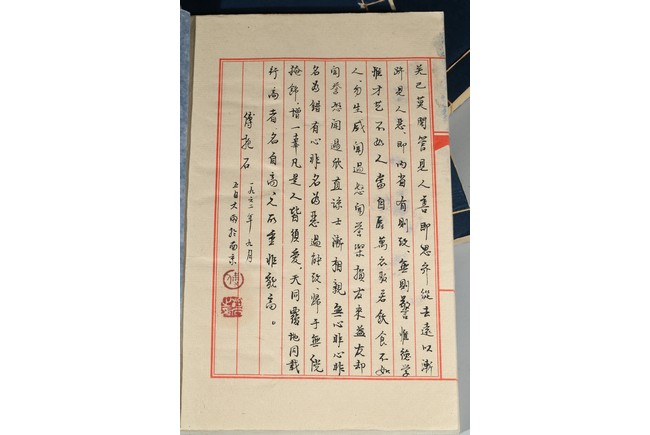 关己莫閒管見人善即思齐從去遠以漸
跻是人惡即内省有則改無則警惟德學
惟才艺不如人當自勵若衣服若飲食不如
人勿生戚聞過怒聞誉樂損友来益友却
聞誉恐聞過欣直諒士漸相親無心非心非
名為錯有心非名為惡過能改歸于無倘
掩飾增一辜凡是人皆須爱天同覆地同載
行高者名自高人所重非貌高。
傅抱石
一九六二年九月
五日大雨於南京